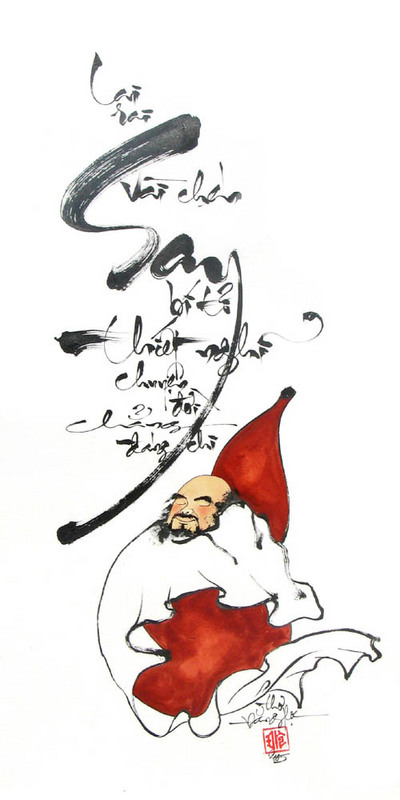 Lai
rai
vài chén
Say
bí tỉ
thiết nghĩ
chuyện
ở đời
chẳng
đáng chi